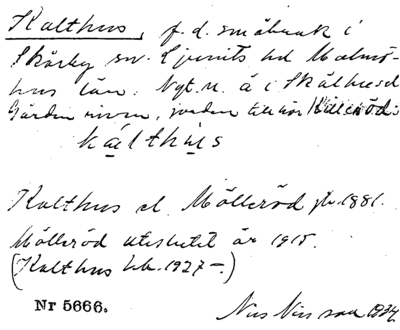 Kalthus, f. d. småbruk i
Skårby sn. Ljunits hd Malmö-
hus län. Nytt n. å i Skårby sn
Gården riven, jorden till Möllеröds
kalthus
Kalthus el. Mölleröd jb. 1881.
Mölleröd uteslutet år 1915.
(Kalthus hb. 1927–.)
Nr 5666.
Nils Nilsson 1934.